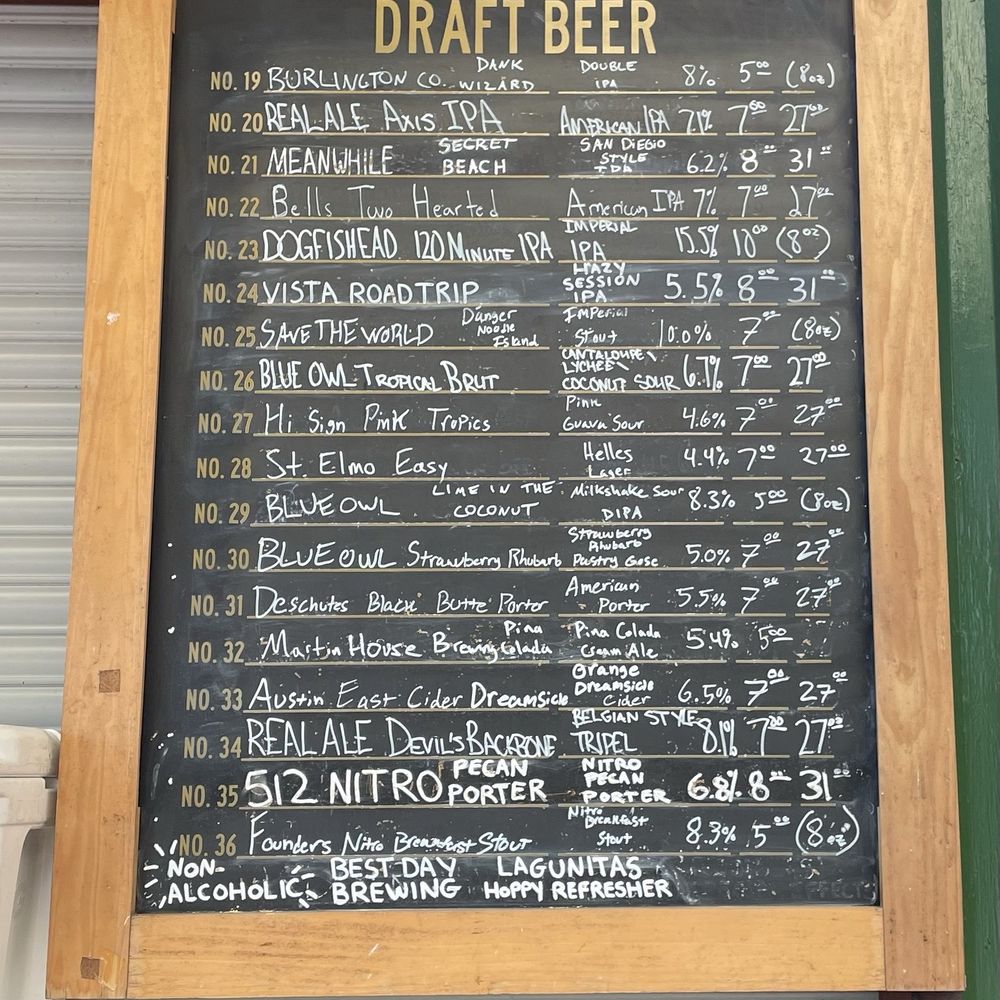 DRAFT BEER
NO. 19 BURLINGTON CO. DANK WIZARD DOUBLE IPA 8% 5.00 (8oz)
NO. 20 REAL ALE AXIS IPA AMERICAN IPA 7.1% 7.00 27.00
NO. 21 MEANWHILE SECRET BEACH SAN DIEGO STYLE IPA 6.2% 8.00 31.00
NO. 22 Bells Two Hearted American IPA 7% 7.00 27.00
NO. 23 DOGFISHEAD 120 MINUTE IPA IMPERIAL IPA 15.5% 10.00 (8oz)
NO. 24 VISTA ROADTRIP HAZY SESSION IPA 5.5% 8.00 31.00
NO. 25 SAVE THE WORLD Danger Noodle Island Imperial Stout 10.0% 7.00 (8oz)
NO. 26 BLUE OWL TROPICAL BRUT CANTALOUPE, LYCHEE, COCONUT SOUR 6.7% 7.00 27.00
NO. 27 Hi Sign Pink Tropics Pink Guava Sour 4.6% 7.00 27.00
NO. 28 St. Elmo Easy Helles Lager 4.4% 7.00 27.00
NO. 29 BLUE OWL LIME IN THE COCONUT Milkshake Sour DIPA 8.3% 5.00 (8oz)
NO. 30 BLUE OWL Strawberry Rhubarb Strawberry Rhubarb Pastry Gose 5.0% 7.00 27.00
NO. 31 Deschutes Black Butte Porter American Porter 5.5% 7.00 27.00
NO. 32 Martin House Brewing Pina Colada Pina Colada Cream Ale 5.4% 5.00
NO. 33 Austin East Cider Dreamsicle Orange Dreamsicle Cider 6.5% 7.00 27.00
NO. 34 REAL ALE DEVIL'S BACKBONE BELGIAN STYLE TRIPEL 8.1% 7.00 27.00
NO. 35 512 NITRO PECAN PORTER NITRO PECAN PORTER 6.8% 8.00 31.00
NO. 36 Founders Nitro Breakfast Stout Nitro Breakfast Stout 8.3% 5.00 (8oz)
NON-ALCOHOLIC: BEST DAY BREWING LAGUNITAS HOPPY REFRESHER